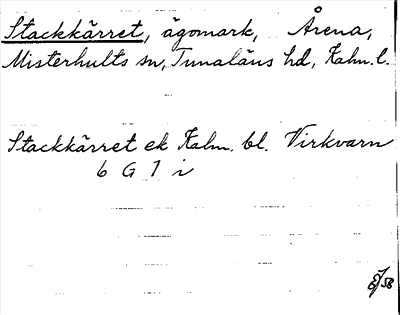 Stackkärret, ägomark, Årena,
Misterhults sn, Tunaläns hd, Kalm. l.
Stackkärret ek Kalm. bl. Virkvarn
6 G 7 i
58